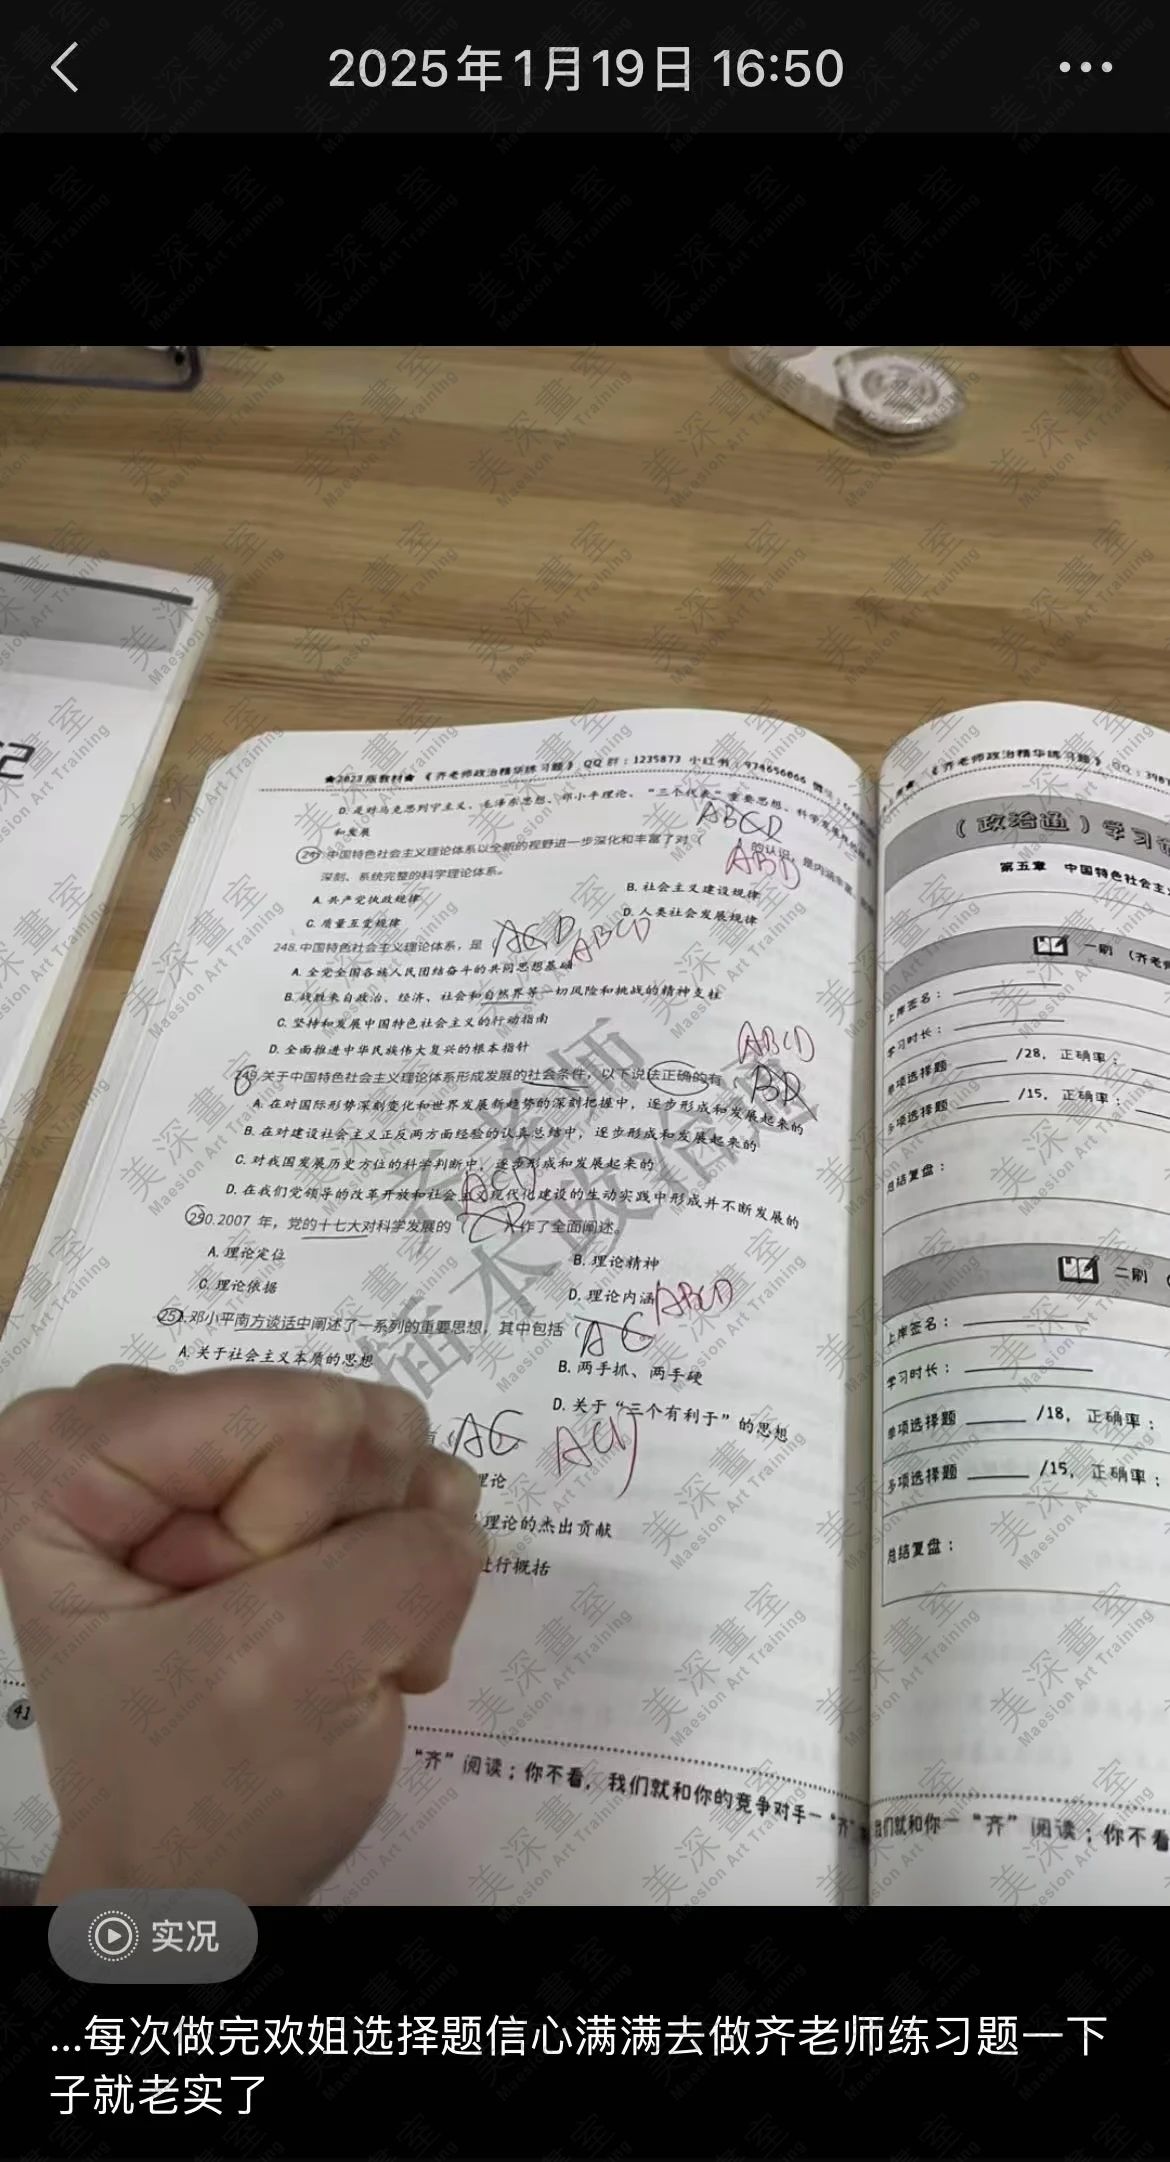 2025年1月19日 16:50
★2023版教材★《齐老师政治精华练习题》QQ群：1235873 小红书：974656866
D. 是对马克思列宁主义、毛泽东思想、邓小平理论、“三个代表”重要思想、科学发展观的
和发展
ABCD
247 中国特色社会主义理论体系以全新的视野进一步深化和丰富了对（
ABD
的认识，是内涵丰富、
深刻、系统完整的科学理论体系。
A. 共产党执政规律
B. 社会主义建设规律
C. 质量互变规律
D. 人类社会发展规律
248. 中国特色社会主义理论体系，是（ACD
ABCD
A. 全党全国各族人民团结奋斗的共同思想基础
B. 战胜来自政治、经济、社会和自然界等一切风险和挑战的精神支柱
C. 坚持和发展中国特色社会主义的行动指南
D. 全面推进中华民族伟大复兴的根本指针
ABCD
249. 关于中国特色社会主义理论体系形成发展的社会条件，以下说法正确的有
BD
A. 在对国际形势深刻变化和世界发展新趋势的深刻把握中，逐步形成和发展起来的
B. 在对建设社会主义正反两方面经验的认真总结中，逐步形成和发展起来的
C. 对我国发展历史方位的科学判断中，逐步形成和发展起来的
D. 在我们党领导的改革开放和社会主义现代化建设的生动实践中形成并不断发展的
ACD
250. 2007 年，党的十七大对科学发展的（
）作了全面阐述。
A. 理论定位
B. 理论精神
C. 理论依据
D. 理论内涵
ABCD
251. 邓小平南方谈话中阐述了一系列的重要思想，其中包括（AC
A. 关于社会主义本质的思想
B. 两手抓、两手硬
D. 关于“三个有利于”的思想
AC
ACD
理论
理论的杰出贡献
进行概括
41
“齐”阅读；你不看，我们就和你的竞争对手一“齐”
《齐老师政治精华练习题》QQ：
（政治通）学习
第五章 中国特色社会主
一刷（齐老师
上岸签名：
学习时长：
单项选择题 /28，正确率：
多项选择题 /15，正确率：
总结复盘：
二刷（
上岸签名：
学习时长：
单项选择题 /18，正确率：
多项选择题 /15，正确率：
总结复盘：
我们就和你一“齐”阅读；你不看
齐老师
插本政治通
实况
...每次做完欢姐选择题信心满满去做齐老师练习题一下
子就老实了
美深畫室
Maesion Art Training